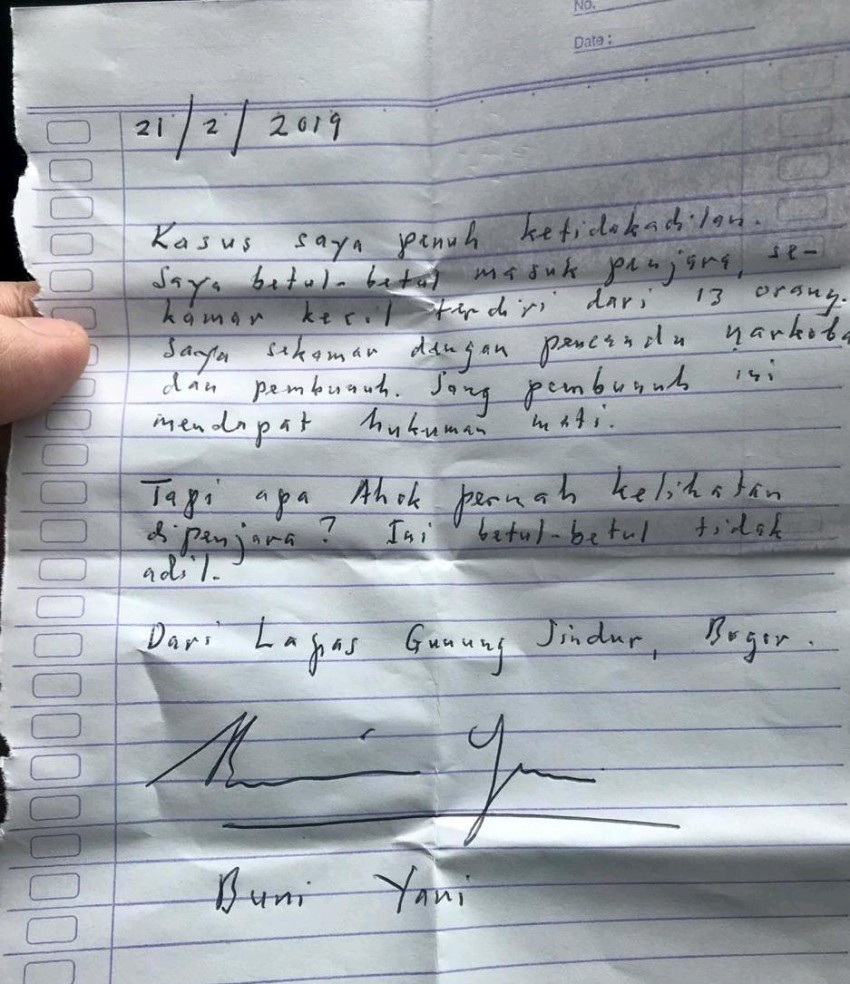 No.
Date :
21/2/2019
Kasus saya penuh ketidakadilan.
Saya betul-betul masuk penjara, se-
kamar kecil terdiri dari 13 orang.
Saya sekamar dengan pencandu narkoba
dan pembunuh. Sang pembunuh ini
mendapat hukuman mati.
Tapi apa Ahok pernah kelihatan
dipenjara? Ini betul-betul tidak
adil.
Dari Lapas Gunung Sindur, Bogor.
Buni Yani